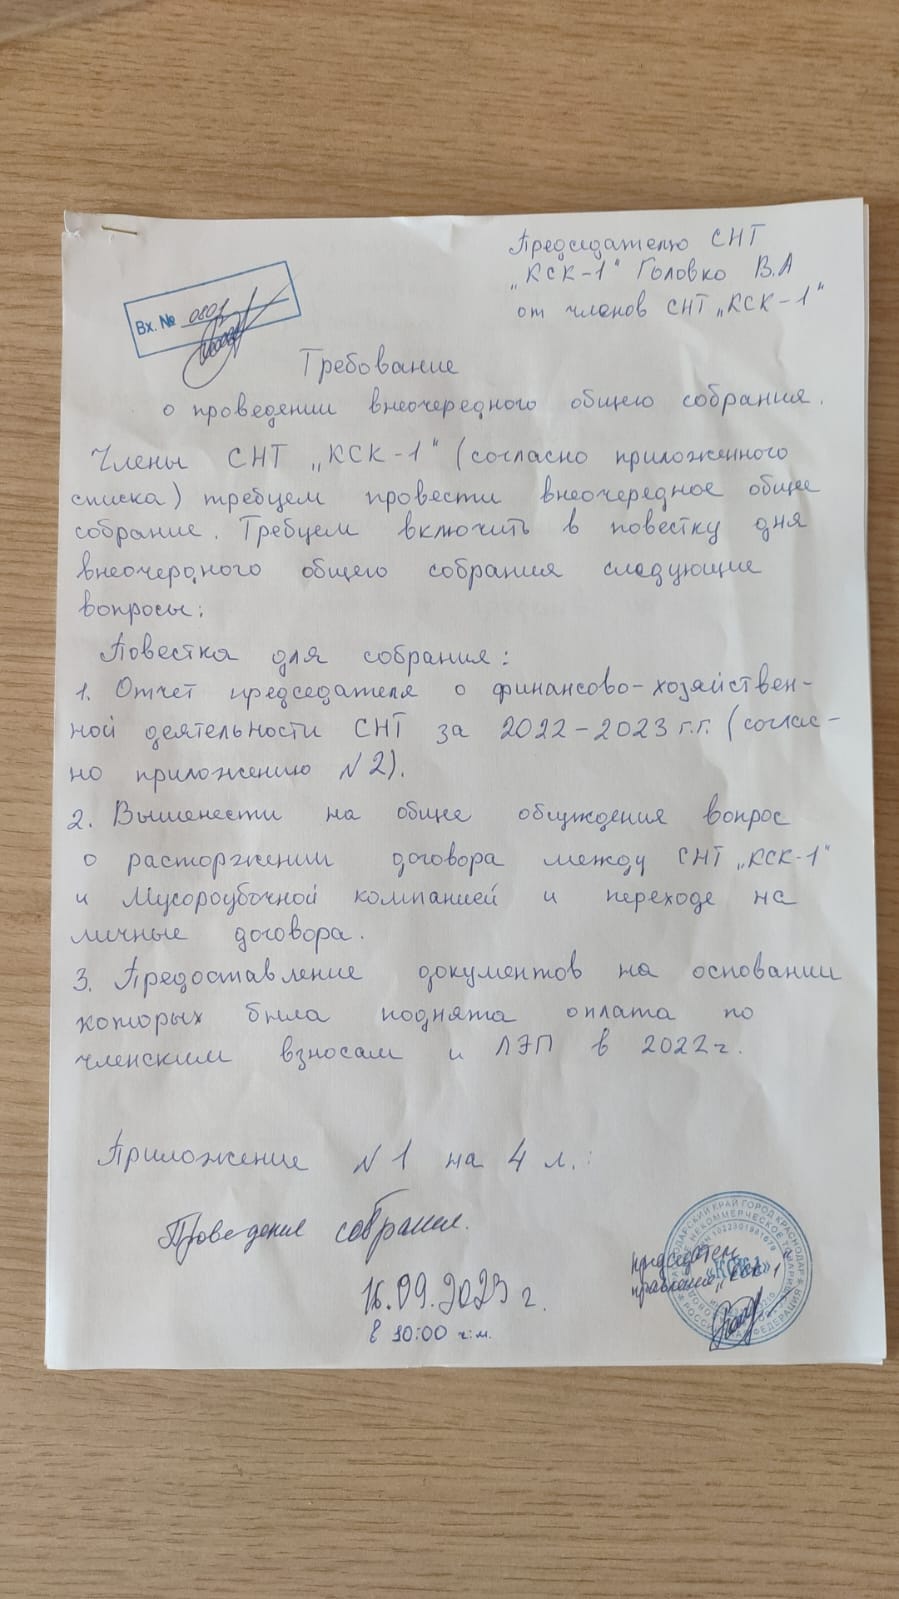 Председателю СНТ
„КСК-1" Головко В.А
от членов СНТ „КСК-1"
Вх. №
Требование
о проведении внеочередного общего собрания.
Члены СНТ „КСК-1" (согласно приложенного
списка) требуем провести внеочередное общее
собрание. Требуем включить в повестку дня
внеочердного общего собрания следующие
вопросы:
Повестка для собрания:
1. Отчет председателя о финансово-хозяйствен-
ной деятельности СНТ за 2022-2023 г.г. (соглас-
но приложению N2).
2. Вышенести на общее обсуждения вопрос
о расторжении договора между СНТ „КСК-1"
и Мусороубочной компанией и переходе на
личные договора.
3. Предоставление документов на основании
которых была поднята оплата по
членским взносам и ЛЭП в 2022г.
Приложение N1 на 4 л.:
Проведения собрания.
16.09.2023 г.
в 10:00 ч:м.
председатель
правления „КСК-1"